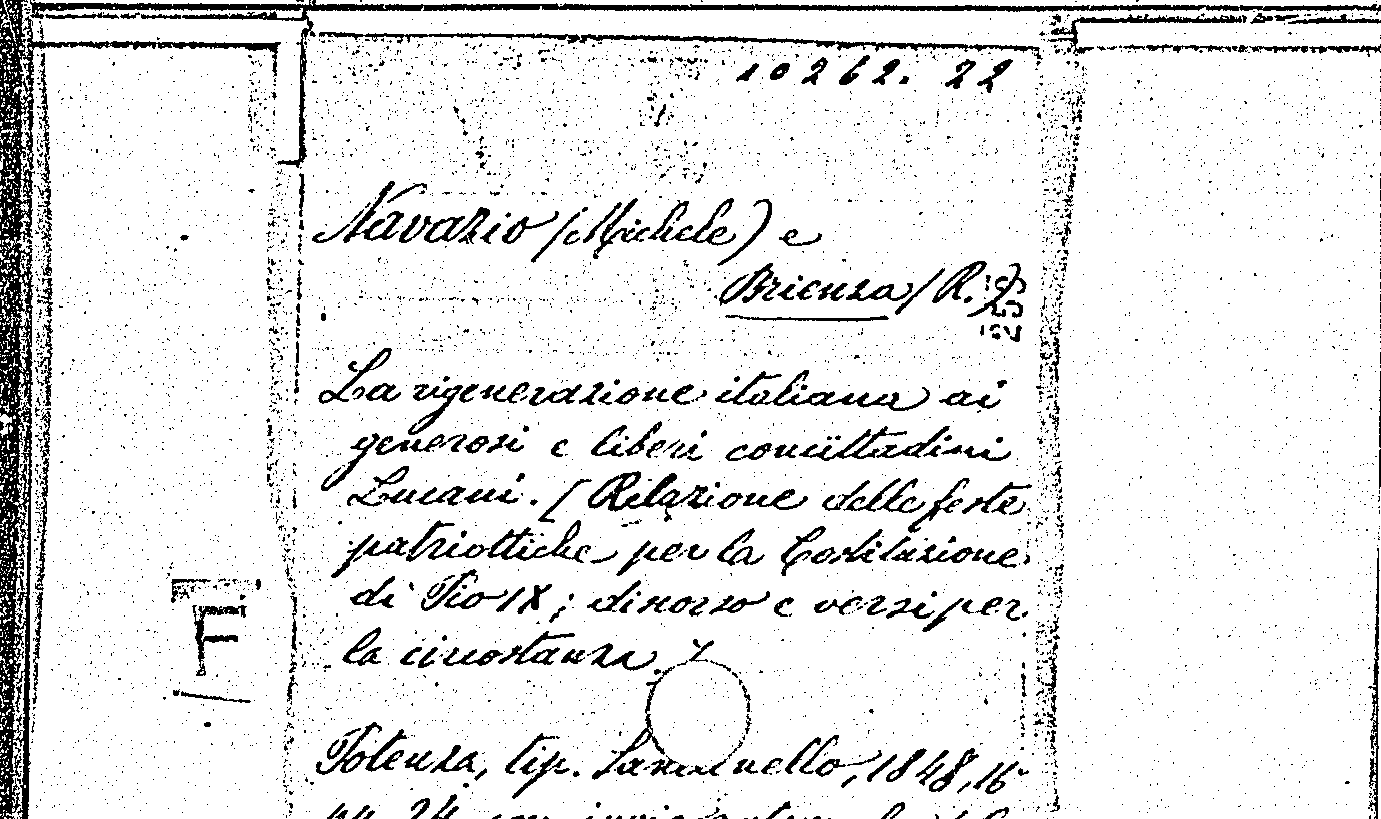 10262. 22
Navazio (Michele) e
Brienza (R.)
La rigenerazione italiana ai
generosi e liberi concittadini
Lucani. [Relazione delle feste
patriottiche per la Costituzione
di Pio IX; discorso e versi per
la circostanza.]
F
Potenza, tip. Santanello, 1848, 16°
pp. 24